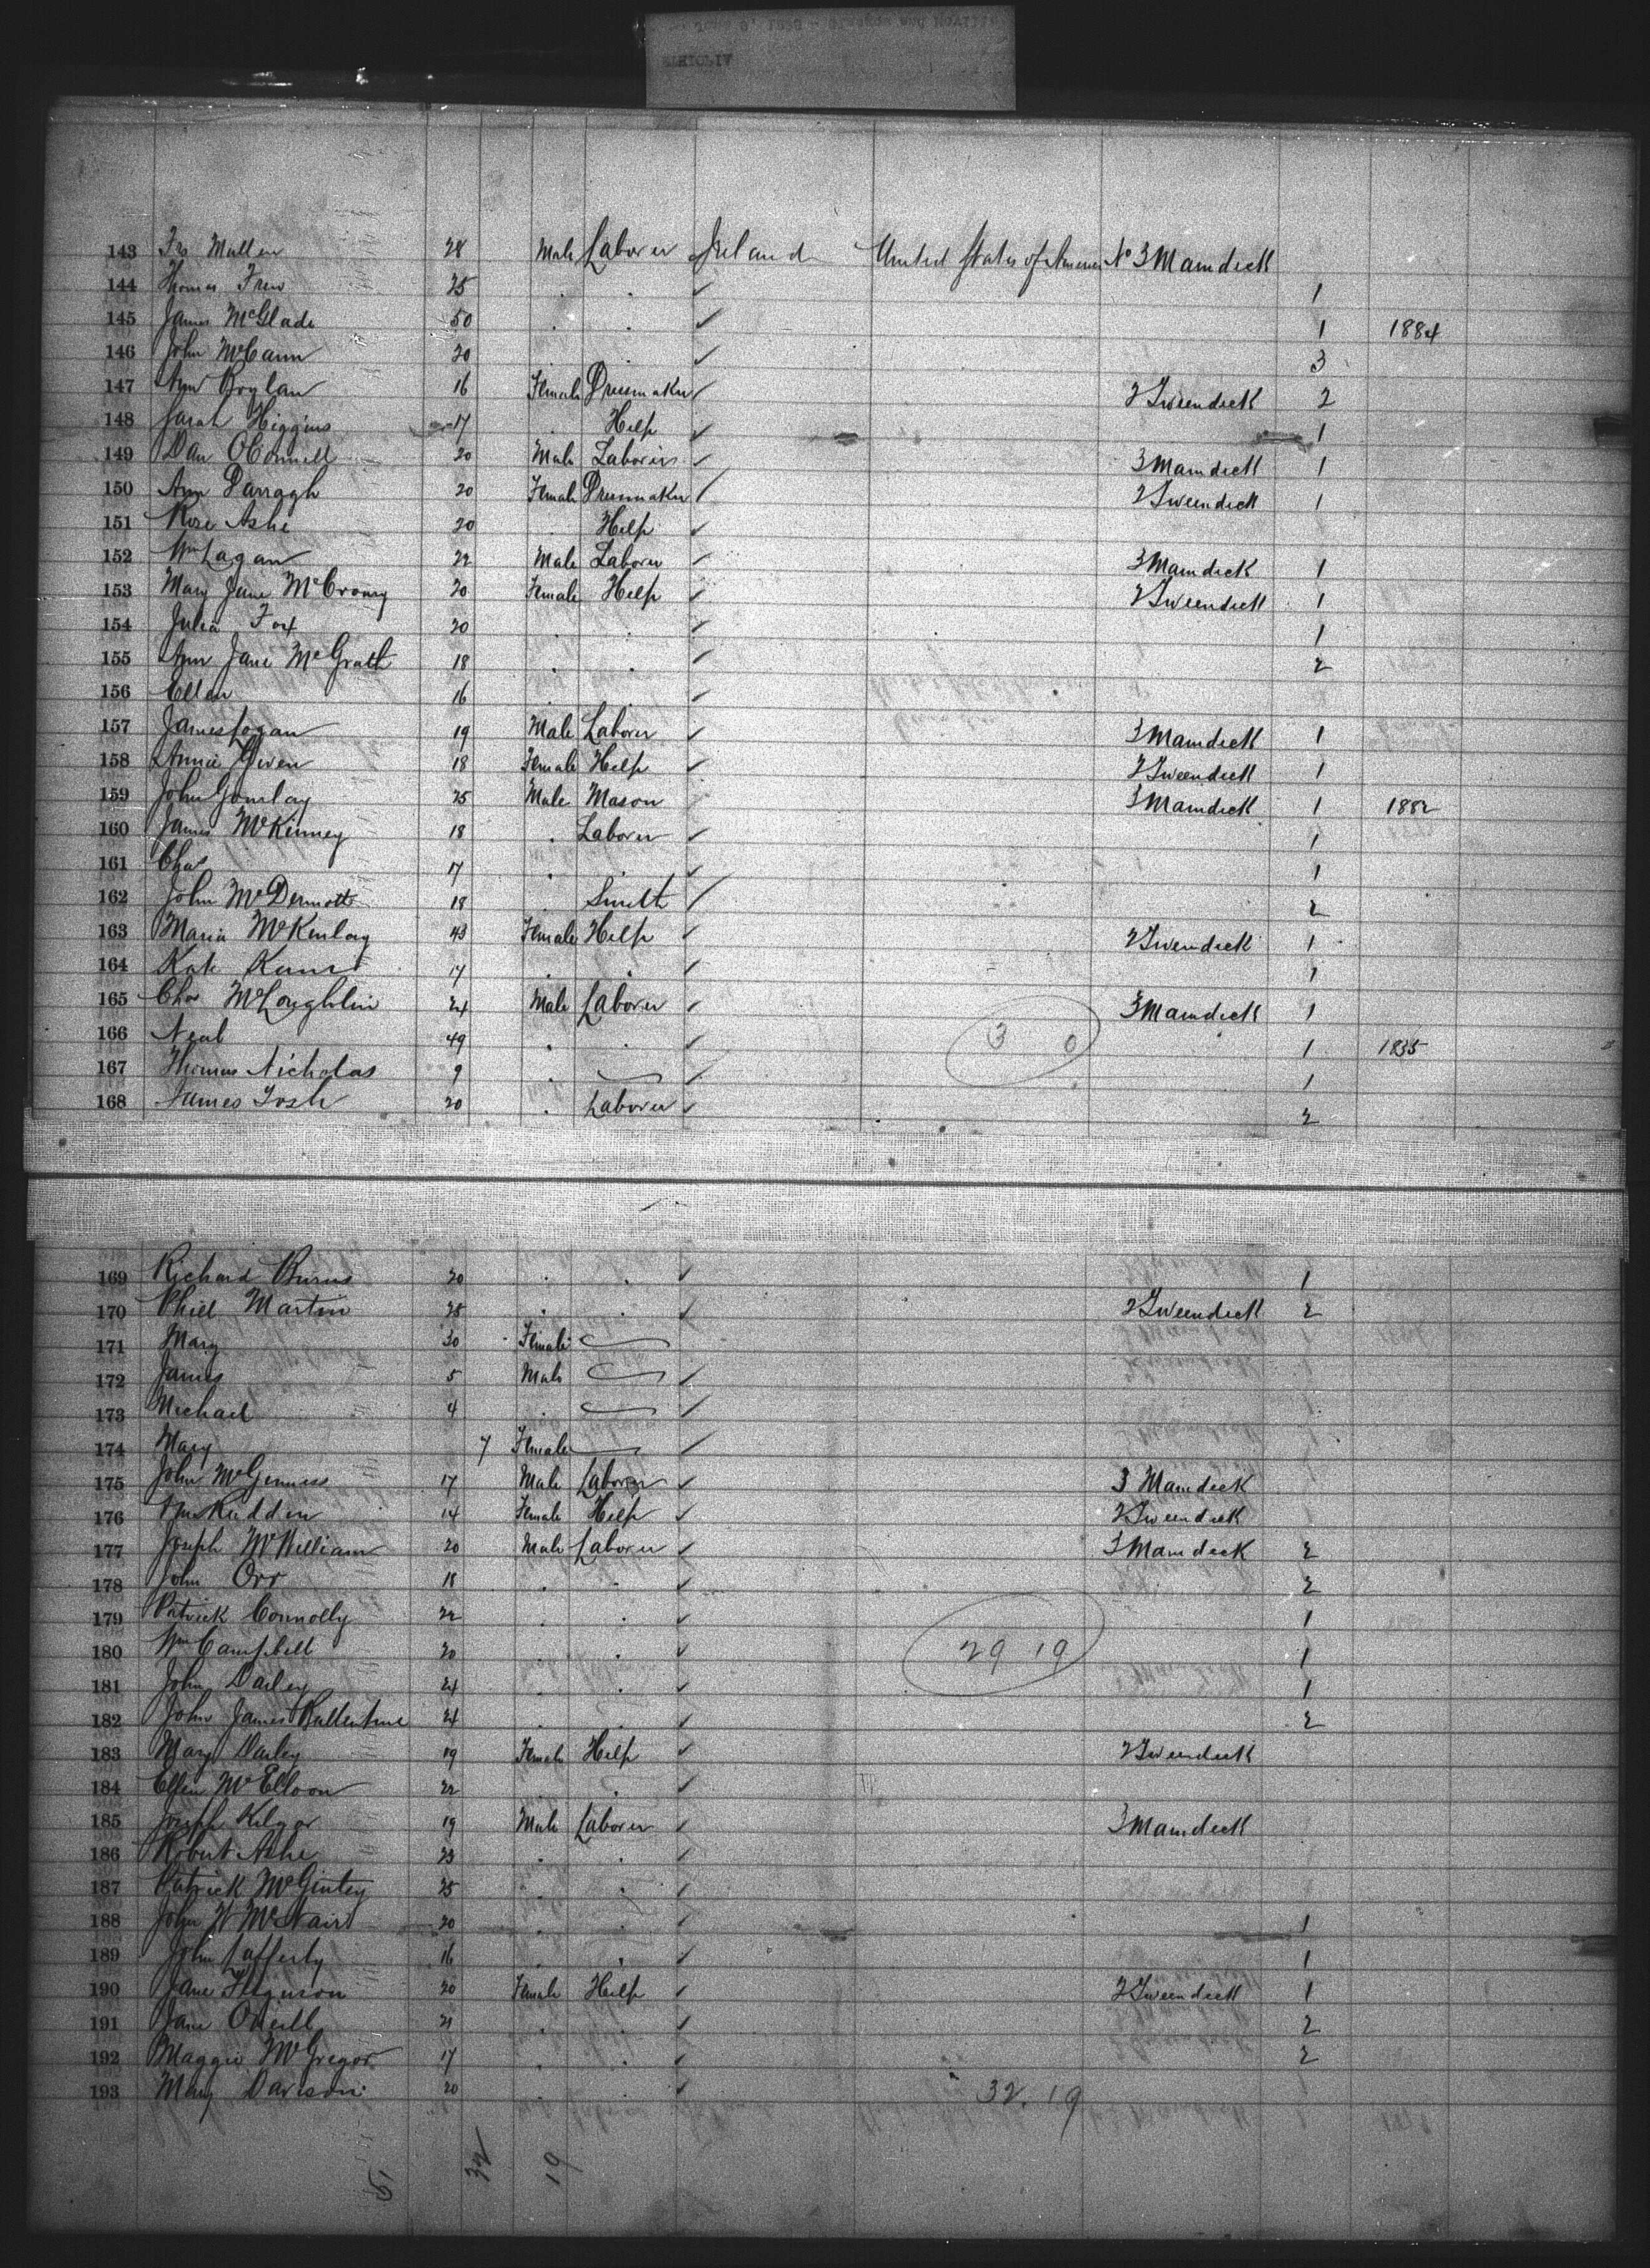 143 Jas Mullen 28 Male Laborer Ireland United States of America No 3 Maindeck
144 Thomas Frew 25 . . ✓ 1
145 James McGlade 50 . . ✓ 1 1884
146 John McCann 20 . . ✓ 3
147 Ann Boylan 16 Female Dressmaker ✓ 2 Tweendeck 2
148 Sarah Higgins 17 . Help ✓ 1
149 Dan OConnell 20 Male Laborer ✓ 3 Maindeck 1
150 Ann Darragh 20 Female Dressmaker ✓ 2 Tweendeck 1
151 Rose Ashe 20 . Help ✓
152 Wm Lagan 22 Male Laborer ✓ 3 Maindeck 1
153 Mary Jane McCrory 20 Female Help ✓ 2 Tweendeck 1
154 Julia Fox 20 . . ✓ 1
155 Ann Jane McGrath 18 . . ✓ 2
156 Ellen 16 . . ✓
157 James Logan 19 Male Laborer ✓ 3 Maindeck 1
158 Annie Given 18 Female Help ✓ 2 Tweendeck 1
159 John Gourlay 25 Male Mason 3 Maindeck 1 1882
160 James McKinney 18 . Laborer ✓ 1
161 Chas 17 . . ✓ 1
162 John McDermott 18 . Smith ✓ 2
163 Maria McKinlay 43 Female Help ✓ 2 Tweendeck 1
164 Kate 17 . . ✓ 1
165 Chas McLoughlin 24 Male Laborer ✓ 3 Maindeck 1
166 Neal 49 . . ✓ 3 0 1 1885
167 Thomas Nicholas 9 . ✓ 1
168 James Tosh 20 . Laborer ✓ 2
169 Richard Burns 20 . . ✓ 1
170 Phill Martin 28 . . ✓ 2 Tweendeck 2
171 Mary 30 Female
172 James 5 Male ✓
173 Michael 4 . ✓
174 Mary 7 Female ✓
175 John McGinness 17 Male Laborer ✓ 3 Maindeck
176 Rudden 14 Female Help ✓ 2 Tweendeck
177 Joseph McWilliam 20 Male Laborer ✓ 3 Maindeck 2
178 John Orr 18 . . ✓ 2
179 Patrick Connolly 22 . . ✓ 1
180 Wm Campbell 20 . . ✓ 29 19 1
181 John Dailey 24 . . ✓ 1
182 John James Ballentine 24 . . ✓ 2
183 Mary Dailey 19 Female Help ✓ 2 Tweendeck
184 22 . ✓
185 Joseph Kilgor 19 Male Laborer ✓ 3 Maindeck
186 Robert Ashe 23 . . ✓
187 Patrick McGinley 25 . . ✓
188 John W McNair 20 . . ✓ 1
189 John Lafferty 16 . . ✓ 1
190 Jane Ferguson 20 Female Help ✓ 2 Tweendeck 1
191 Jane ONeill 21 . . ✓ 2
192 Maggie McGregor 17 . . ✓ 2
193 Mary Davison 20 . . ✓ 32.19
51 32 19